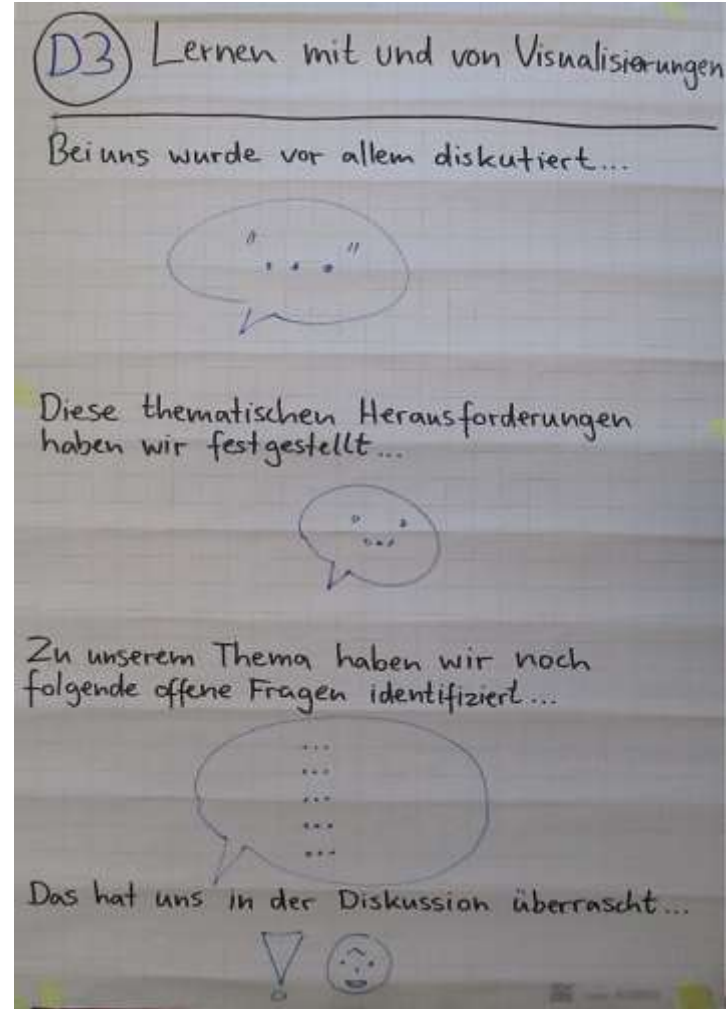 D3 Lernen mit und von Visualisierungen
Bei uns wurde vor allem diskutiert...
" ... "
Diese thematischen Herausforderungen
haben wir festgestellt...
...
Zu unserem Thema haben wir noch
folgende offene Fragen identifiziert...
...
...
...
...
...
Das hat uns in der Diskussion überrascht...
!